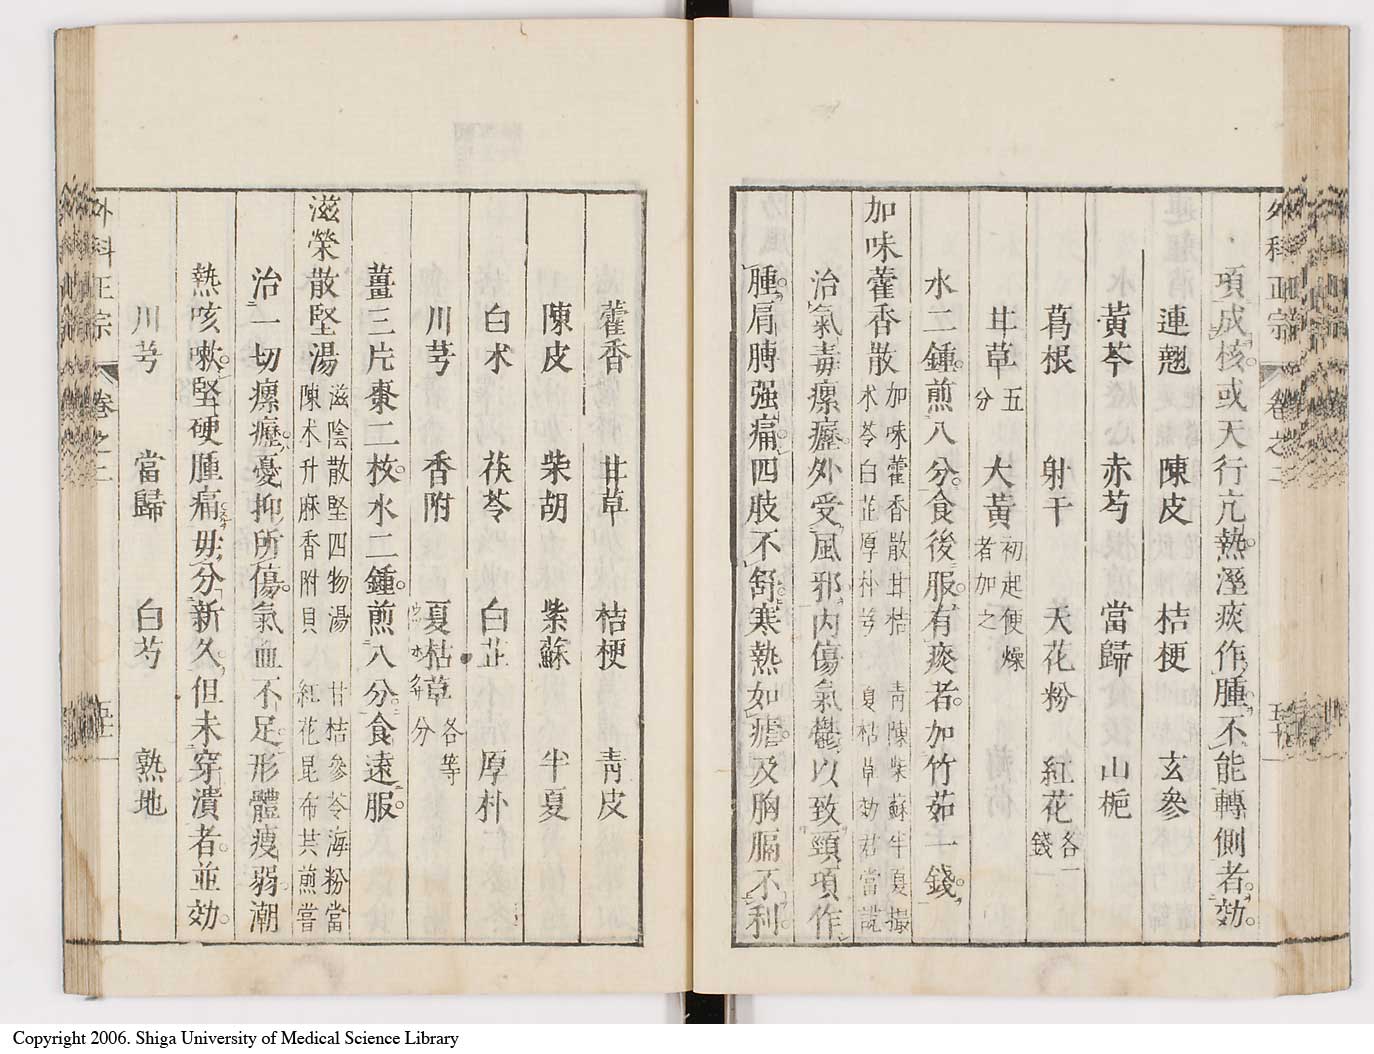 外科正宗 卷之二
項成核。或天行亢熱。溼痰作腫。不能轉側者。効。
連翹 陳皮 桔梗 玄參
黃芩 赤芍 當歸 山梔
葛根 射干 天花粉 紅花各一錢
甘草五分 大黃初起便燥者加之
水二鍾。煎八分。食後服。有痰者。加竹茹一錢。
加味藿香散加味藿香散甘桔 青陳柴蘇半夏撮 术苓白芷厚朴芎 夏枯草効君當説
治氣毒瘰癧。外受風邪。內傷氣鬱。以致頸項作
腫。肩膊强痛。四肢不舒。寒熱如瘧。及胸膈不利。
藿香 甘草 桔梗 青皮
陳皮 柴胡 紫蘇 半夏
白术 茯苓 白芷 厚朴
川芎 香附 夏枯草各等分
薑三片棗二枚。水二鍾。煎八分。食遠服。
滋榮散堅湯滋陰散堅四物湯 甘桔參苓海粉當 陳术升麻香附貝 紅花昆布共煎嘗
治一切瘰癧。憂抑所傷。氣血不足。形體瘦弱。潮
熱咳嗽。堅硬腫痛。毋分新久。但未穿潰者。並効。
川芎 當歸 白芍 熟地
外科正宗 卷之二
Copyright 2006. Shiga University of Medical Science Library